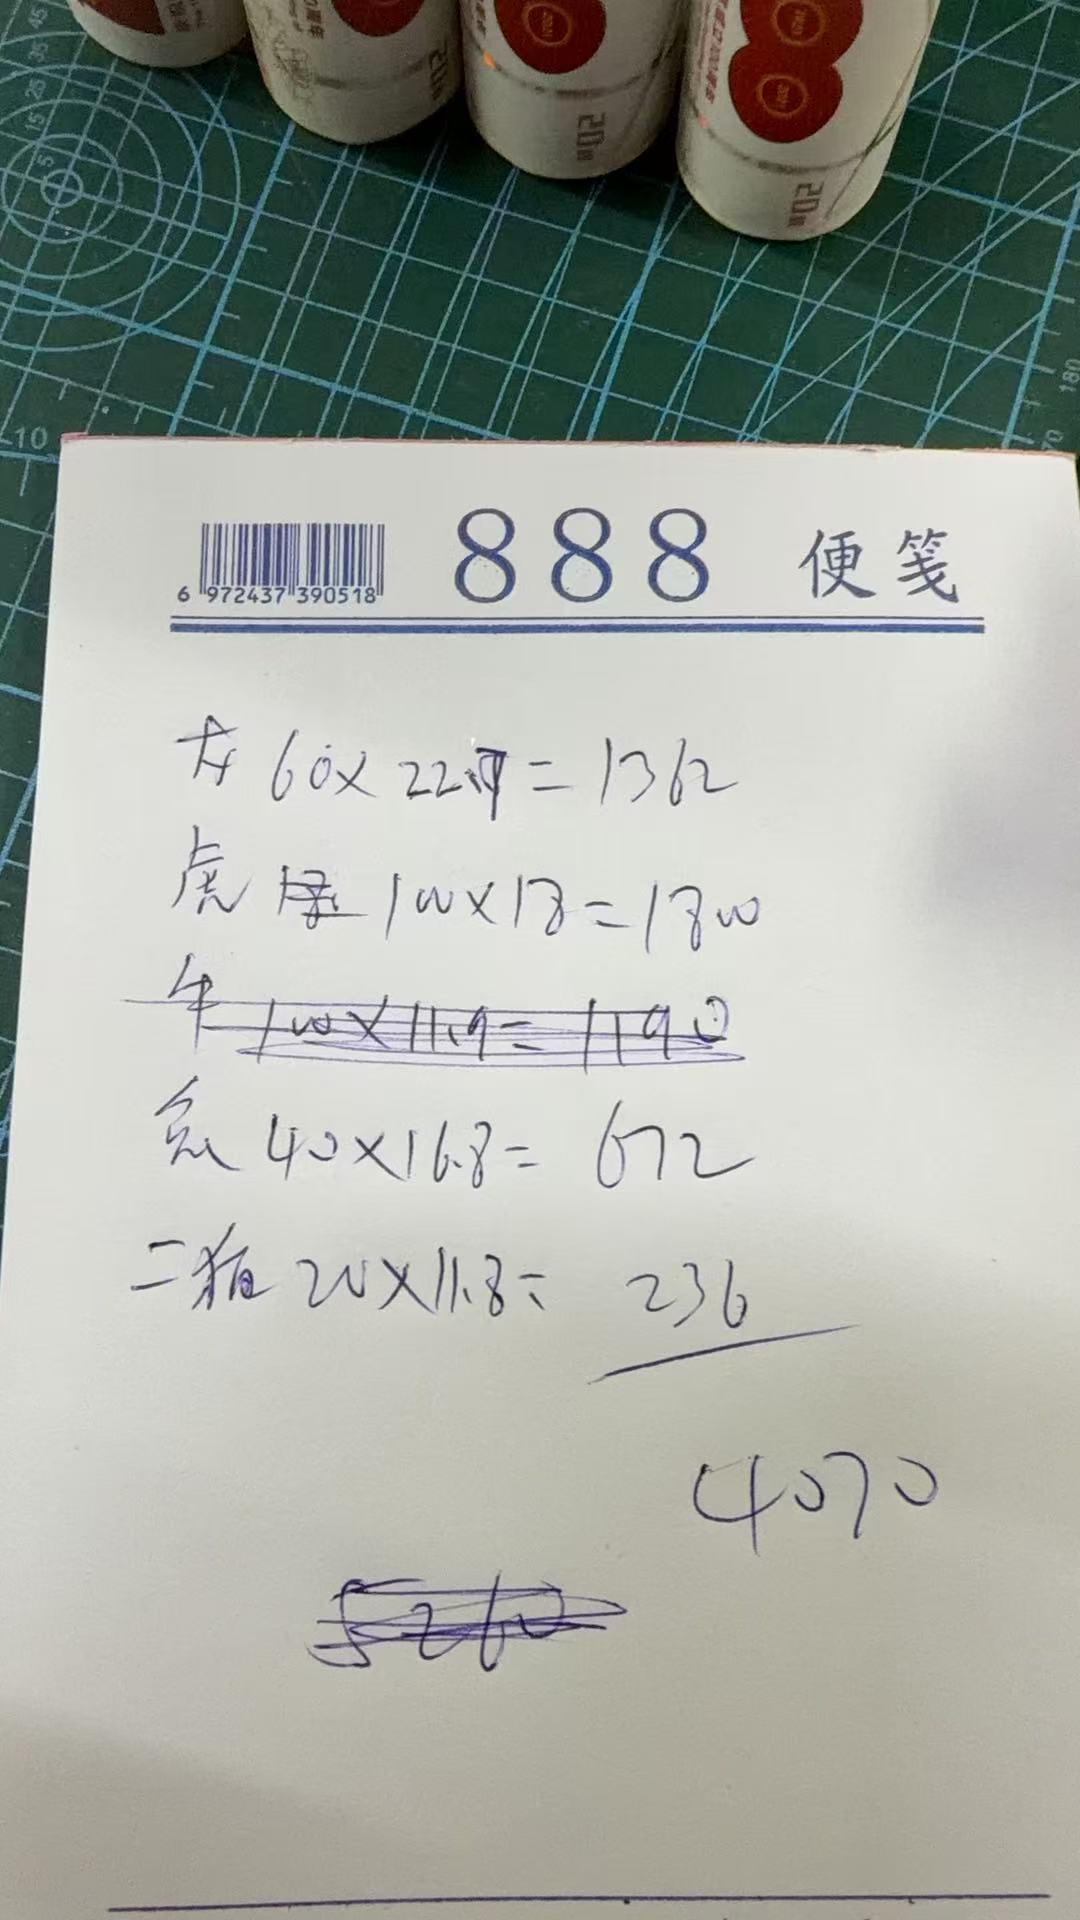 20枚
20枚
20枚
6 972437 390518
888 便笺
龙 60×22.7=1362
虎 100×18=1800
牛 100×11.9=1190
兔 40×16.8=672
二猪 20×11.8=236
4070
5260